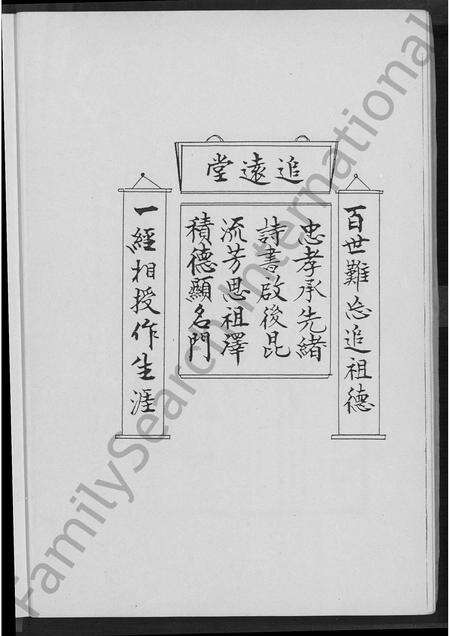 追遠堂
百世難忘追祖德
忠孝承先緒
詩書啟後昆
流芳思祖澤
積德顯名門
一經相授作生涯
FamilySearch International